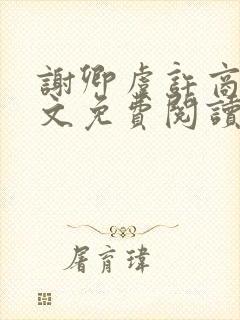 謝卿虞許高
文免費閱讀
屠育瑋